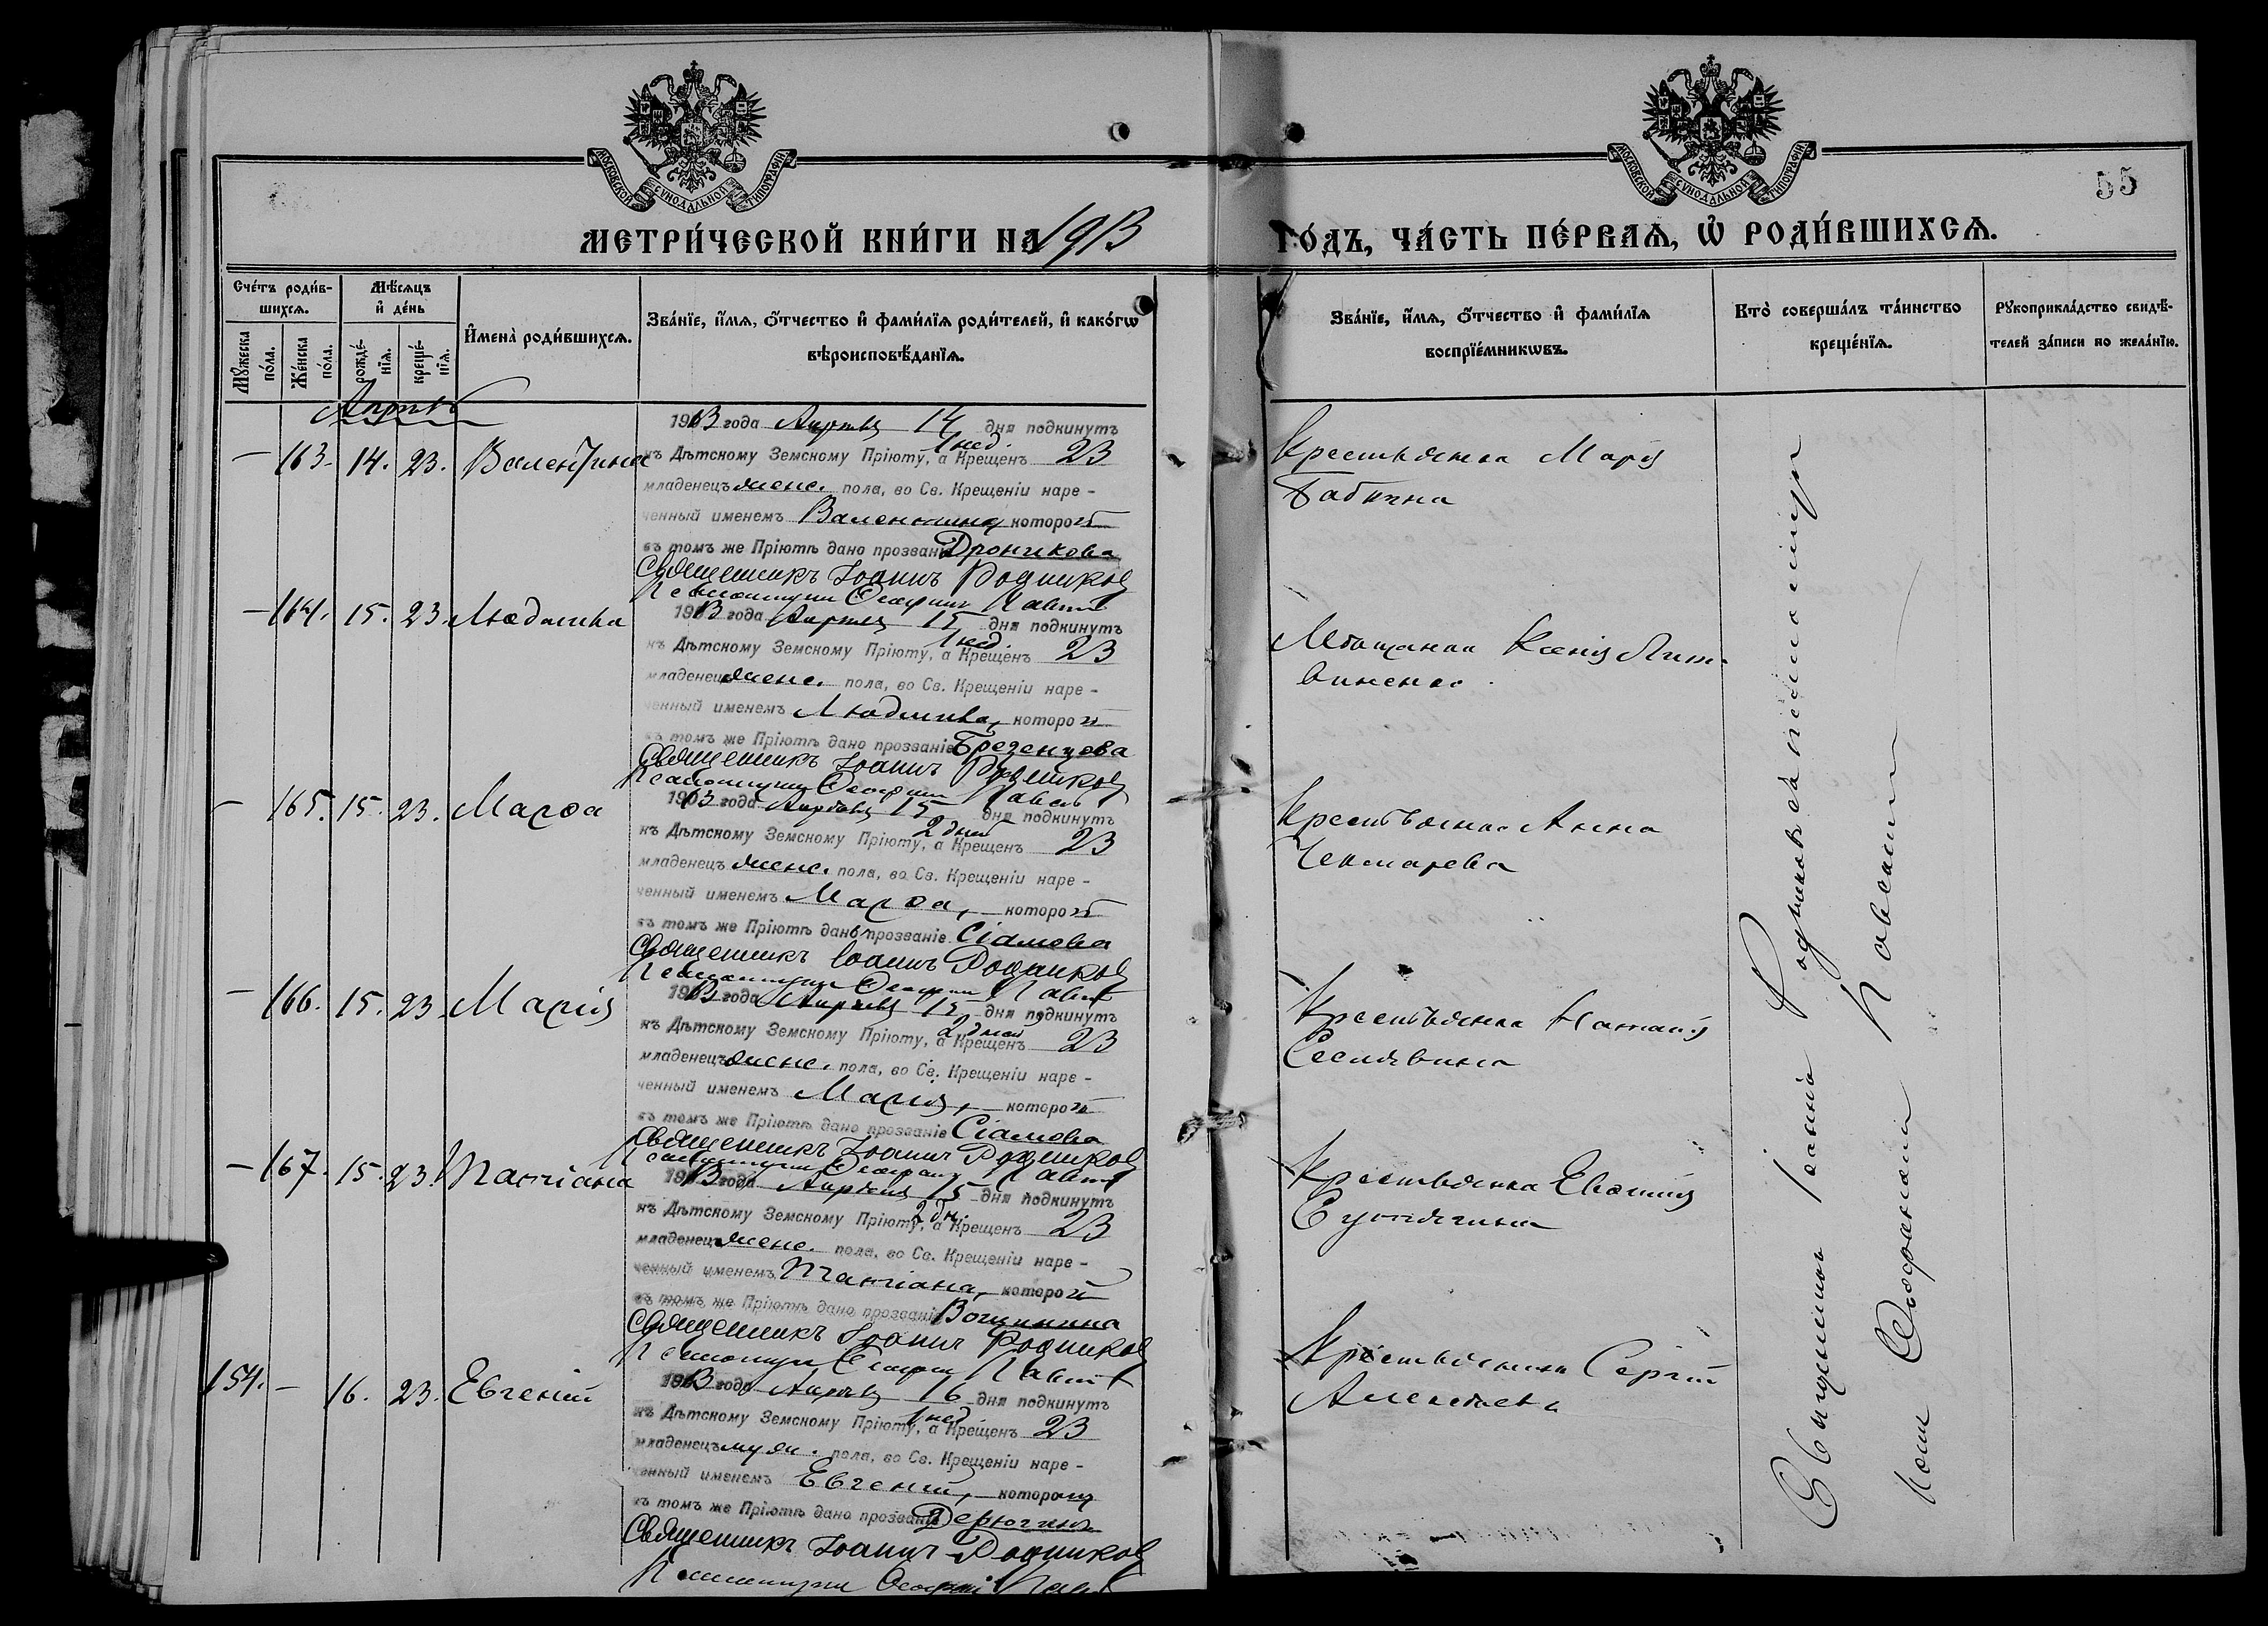 МОСКОВСКОЙ СѴНОДАЛЬНОЙ ТИПОГРАФІИ
МОСКОВСКОЙ СѴНОДАЛЬНОЙ ТИПОГРАФІИ
55
МЕТРИ́ЧЕСКОЙ КНИ́ГИ НА 1913 ГО́ДЪ, ЧА́СТЬ ПЕ́РВАЯ, Ѡ҆ РОДИ́ВШИХСЯ.
Сче́тъ роди́в-
шихся.
Мꙋжеска по́ла.
Же́нска по́ла.
Мѣ́сяцъ и҆ де́нь
рожде́-
нїя.
креще́-
нїя.
И҆мена̀ роди́вшихся.
Зва́нїе, и҆́мя, ѻ҆́тчество и҆ фами́лїя роди́телей, и҆ како́гѡ
вѣроисповѣ́данїя.
Зва́нїе, и҆́мя, ѻ҆́тчество и҆ фами́лїя
воспрїе́мникѡвъ.
Кто̀ соверша́лъ та́инство
креще́нїя.
Рꙋкоприкла́дство свидѣ́-
телей за́писи по жела́нїю.
Апрѣль
— 163. 14. 23. Валентина
1913 года Апрѣля 14 дня подкинутъ
къ Дѣтскому Земскому Пріюту, 1 нед. а Крещенъ 23
младенецъ женс. пола, во Св. Крещеніи наре-
ченный именемъ Валентина которой
въ томъ же Пріютѣ дано прозваніе Дроникова
Священникъ Іоаннъ Родниковъ
Крестьянка Марія
Бабкина
— 164. 15. 23. Людмила
1913 года Апрѣля 15 дня подкинутъ
къ Дѣтскому Земскому Пріюту, 1 нед. а Крещенъ 23
младенецъ женс. пола, во Св. Крещеніи наре-
ченный именемъ Людмила, которой
въ томъ же Пріютѣ дано прозваніе Брезенцова
Священникъ Іоаннъ Родниковъ
Мѣщанка Ксенія Лит-
виненко
— 165. 15. 23. Марѳа
1913 года Апрѣля 15 дня подкинутъ
къ Дѣтскому Земскому Пріюту, 2 дней а Крещенъ 23
младенецъ женс. пола, во Св. Крещеніи наре-
ченный именемъ Марѳа, которой
въ томъ же Пріютѣ дано прозваніе Сіамова
Священникъ Іоаннъ Родниковъ
Крестьянка Анна
Чекмарева
— 166. 15. 23. Марія
1913 года Апрѣля 15 дня подкинутъ
къ Дѣтскому Земскому Пріюту, 2 дней а Крещенъ 23
младенецъ женс. пола, во Св. Крещеніи наре-
ченный именемъ Марія, которой
въ томъ же Пріютѣ дано прозваніе Сіамова
Священникъ Іоаннъ Родниковъ
Крестьянка Наталія
Сеславина
— 167. 15. 23. Татіана
1913 года Апрѣля 15 дня подкинутъ
къ Дѣтскому Земскому Пріюту, 2 дн. а Крещенъ 23
младенецъ женс. пола, во Св. Крещеніи наре-
ченный именемъ Татіана, которой
въ томъ же Пріютѣ дано прозваніе Вощинина
Священникъ Іоаннъ Родниковъ
Крестьянка Евѳимія
154. — 16. 23. Евгеній
1913 года Апрѣля 16 дня подкинутъ
къ Дѣтскому Земскому Пріюту, 1 нед. а Крещенъ 23
младенецъ муж. пола, во Св. Крещеніи наре-
ченный именемъ Евгеній, которому
въ томъ же Пріютѣ дано прозваніе Дерюгинъ
Священникъ Іоаннъ Родниковъ
Сергій
Алексѣевъ
Священникъ Іоаннъ Родниковъ съ псаломщикомъ